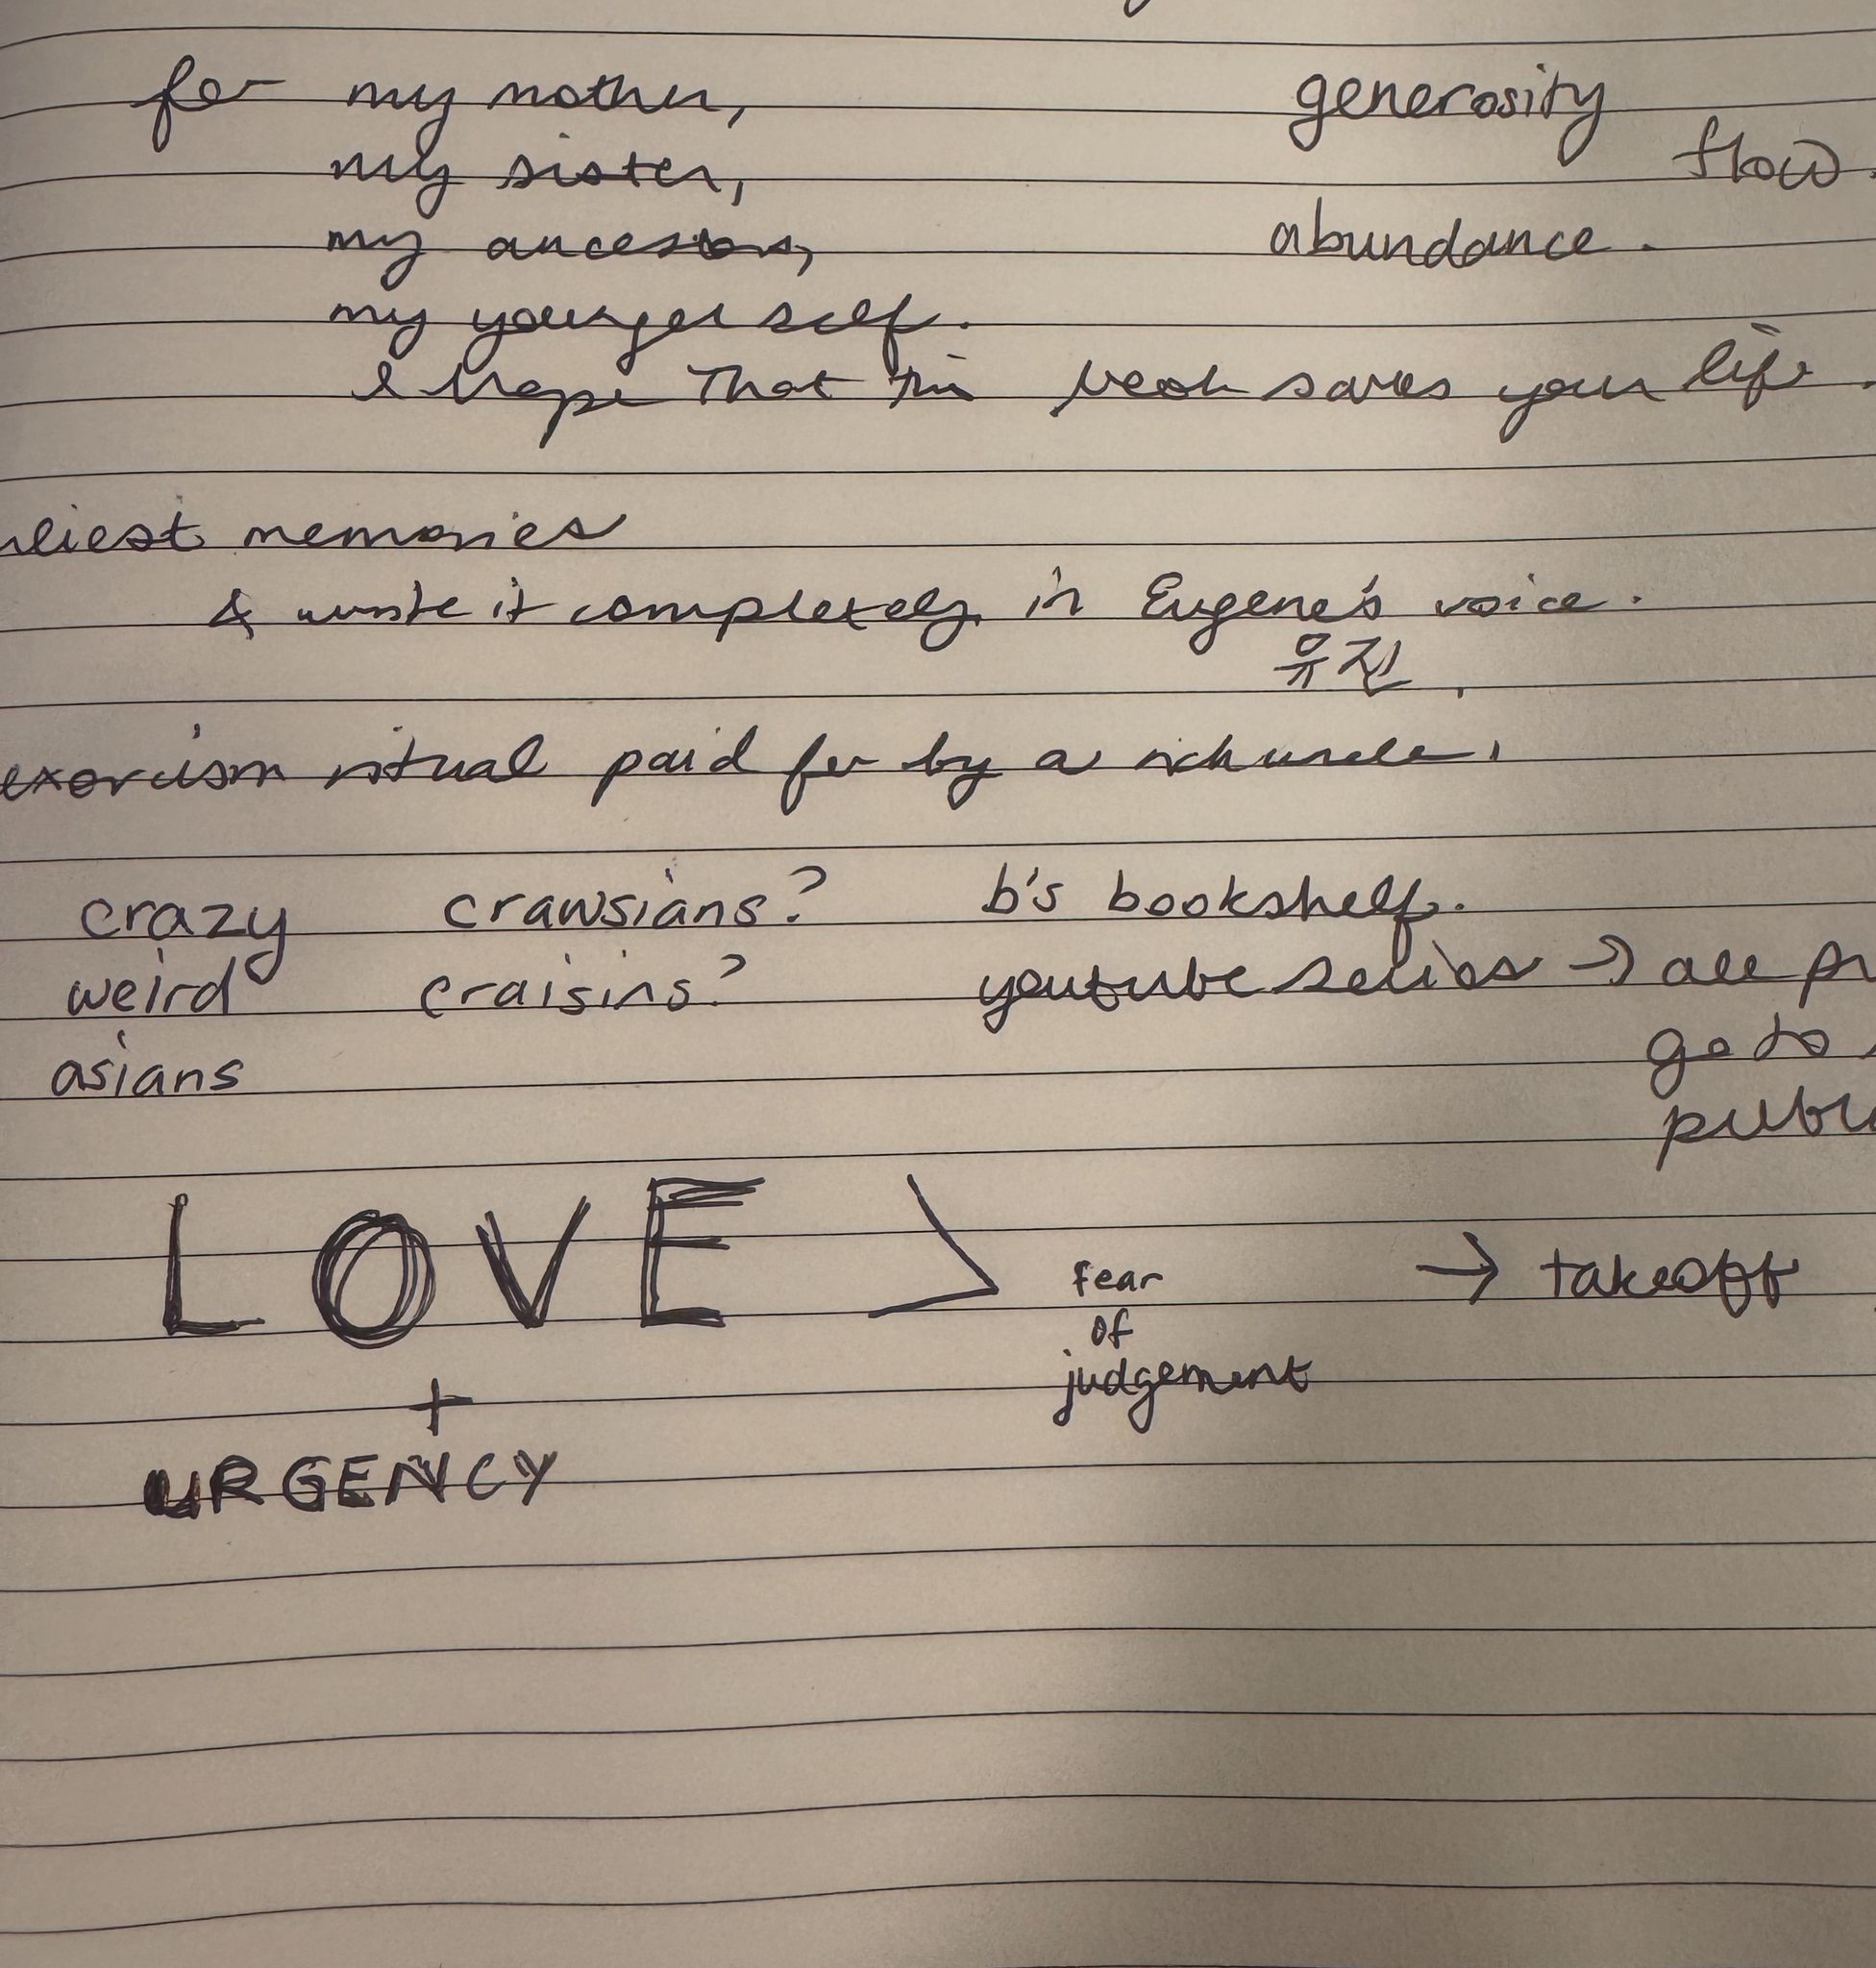 for my mother,
my sister,
my ancestors,
my younger self.
generosity
flow.
abundance.
I hope that this book saves your life.
liest memories
& write it completely in Eugene's voice.
유진.
exorcism ritual paid for by a rich uncle.
crazy crawsians? b's bookshelf.
weird craisins? youtube series → all pr
asians
go to
pub
LOVE > fear
of
judgement
→ takeoff
+
URGENCY